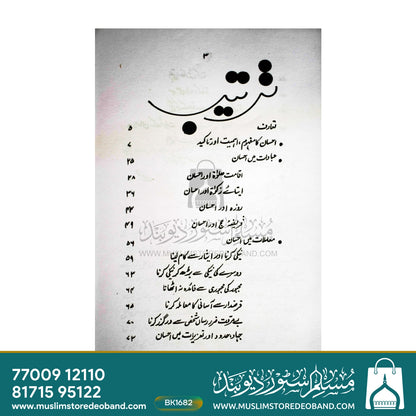 ۳
ترتیب
تعارف ۵
• احسان کا مفہوم، اہمیت اور تاکید ۷
• عبادات میں احسان ۲۵
اقامت صلوٰۃ اور احسان ۲۸
ایتائے زکوٰۃ اور احسان ۳۶
روزہ اور احسان ۴۴
فریضۂ حج اور احسان ۴۹
• معاملات میں احسان ۵۶
نیکی کرنا اور ایثار سے کام لینا ۵۹
دوسرے کی نیکی سے بڑھ کر نیکی کرنا ۶۲
مجبور کی مجبوری سے فائدہ نہ اٹھانا ۶۴
قرضدار سے آسانی کا معاملہ کرنا ۶۵
بے مروّت ضرر رساں شخص سے درگزر کرنا ۷۰
جہاد حدود اور تعزیرات میں احسان ۷۲
مسلم سٹور دیوبند
WWW.MUSLIMSTOREDEOBAND.COM
77009 12110
81715 95122
www.muslimstoredeoband.com
BK1682
مسلم سٹور دیوبند
WWW.MUSLIMSTOREDEOBAND.COM